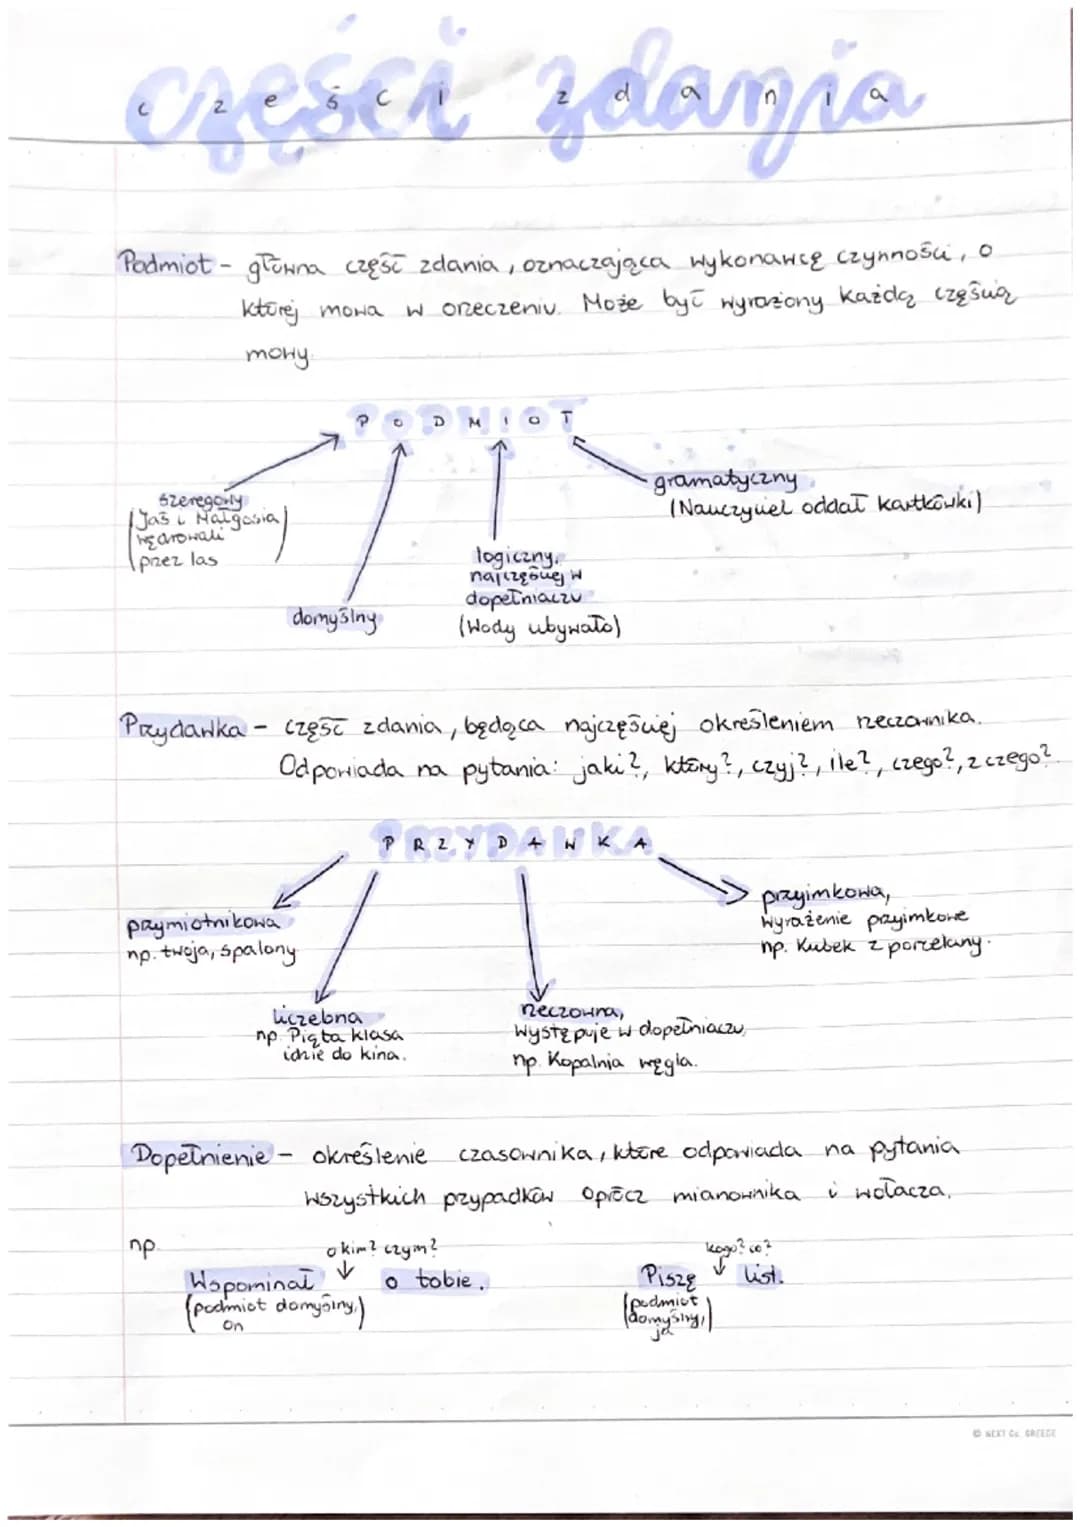 części zdania
c z e ś c i z d a n i a
Podmiot - główna część zdania, oznaczająca wykonawcę czynności, o
której mowa w orzeczeniu. Może być wyrażony każdą częścią
mowy.
PODMIOT
szeregowy
(Jaś i Małgosia
wędrowali
przez las)
domyślny
logiczny,
najczęściej w
dopełniaczu
(Wody ubywało)
gramatyczny
(Nauczyciel oddał kartkówki)
Przydawka - część zdania, będąca najczęściej określeniem rzeczownika.
Odpowiada na pytania: jaki?, który?, czyj?, ile?, czego?, z czego?
PRZYDAWKA
przymiotnikowa
np. twoja, spalony
liczebna
np. Piąta klasa
idzie do kina.
rzeczowna,
występuje w dopełniaczu,
np. Kopalnia węgla.
przyimkowa,
wyrażenie przyimkowe
np. Kubek z porcelany.
Dopełnienie - określenie czasownika, które odpowiada na pytania
wszystkich przypadków oprócz mianownika i wołacza.
np.
o kim? czym?
Wspominał o tobie.
(podmiot domyślny,)
on
kogo? co?
Piszę list.
(podmiot
domyślny,)
ja
© NEXT Co. GREECE